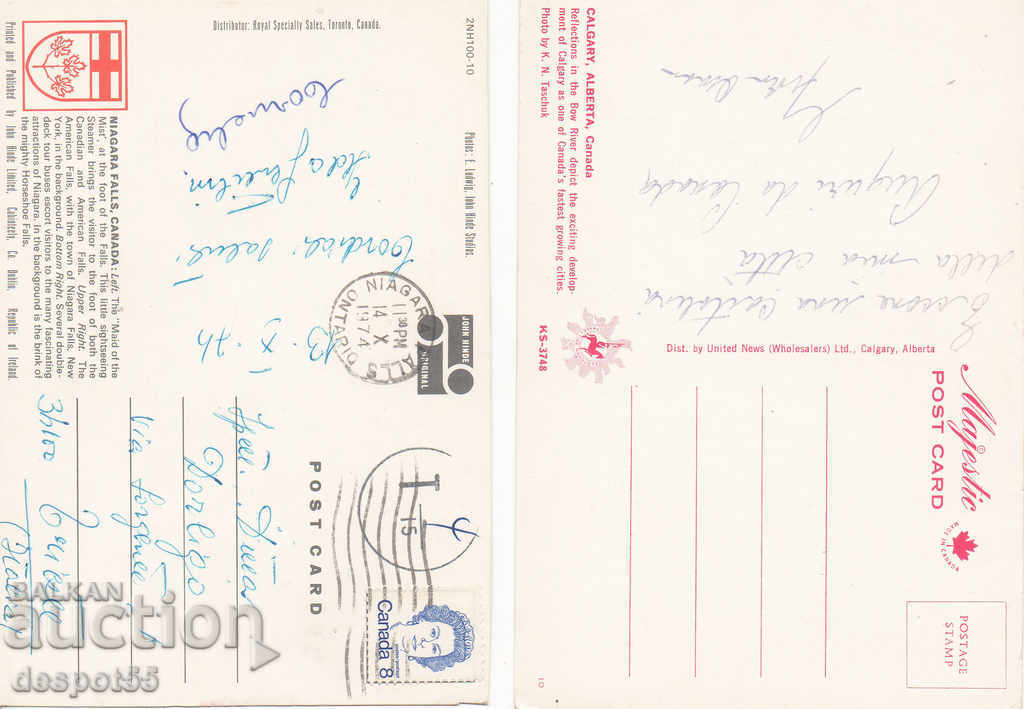 2NH100-10
Photos: E. Ludwig, John Hinde Studios.
Distributor: Royal Specialty Sales, Toronto, Canada.
NIAGARA FALLS, CANADA: Left. The "Maid of the
Mist", at the foot of the Falls. This little sightseeing
Steamer brings the visitor to the foot of both the
Canadian and American Falls. Upper Right. The
American Falls, with the town of Niagara Falls, New
York, in the background. Bottom Right. Several double-
deck tour buses escort visitors to the many fascinating
attractions of Niagara, in the background is the brink of
the mighty Horseshoe Falls.
Printed and Published by John Hinde Limited, Cabinteely, Co. Dublin, Republic of Ireland.
X
NIAGARA FALLS ONTARIO
11 30 PM
14 X
1974
JOHN HINDE
ORIGINAL
POST CARD
T
15
Canada 8
Via
CALGARY, ALBERTA, Canada
Reflections in the Bow River depict the exciting develop-
ment of Calgary as one of Canada's fastest growing cities.
Photo by K. N. Taschuk
KS-3748
Dist. by United News (Wholesalers) Ltd., Calgary, Alberta
Majestic
POST CARD
MADE IN CANADA
POSTAGE
STAMP
10
Eccone una
della mia città
Auguri da Canada
BALKAN
auction
despot55